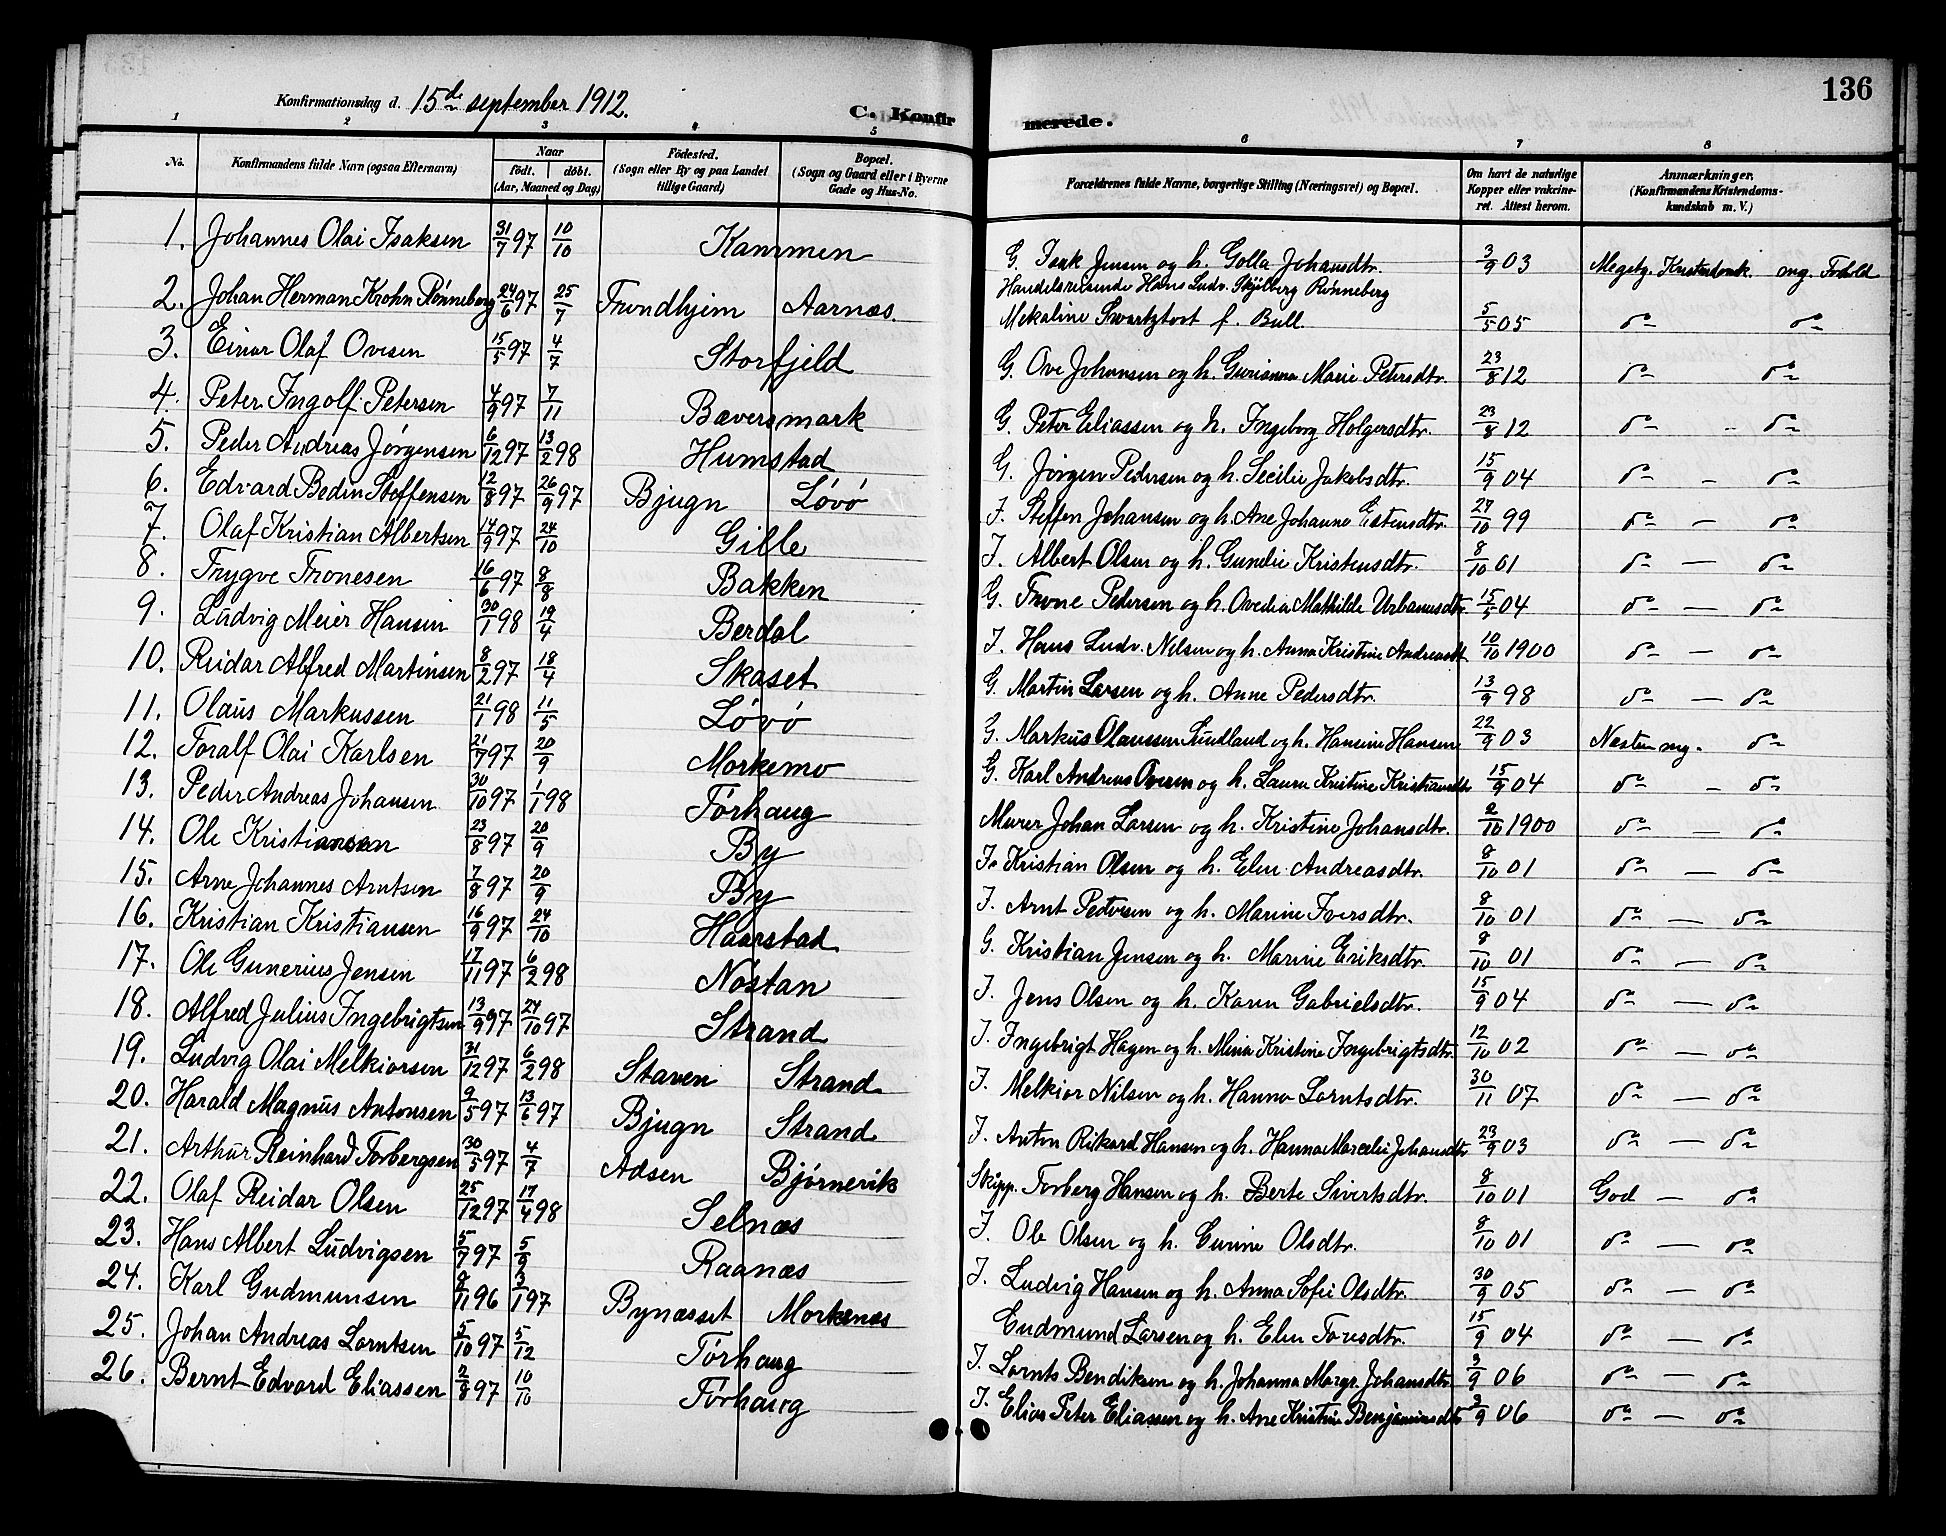 136
Konfirmationsdag d. 15de september 1912.
C. Konfirmerede.
1 2 3 4 5 6 7 8
No. Konfirmandens fulde Navn (ogsaa Efternavn) Naar født. døbt. (Aar, Maaned og Dag) Fødested. (Sogn eller By og paa Landet tillige Gaard) Bopæl. (Sogn og Gaard eller i Byerne Gade og Hus-No. Forældrenes fulde Navne, borgerlige Stilling (Næringsvei) og Bopæl. Om havt de naturlige Kopper eller vakcineret. Attest herom. Anmærkninger. (Konfirmandens Kristendomskundskab m. V.)
1. Johannes Olai Isaksen 31/7 97 10/10 Kammen G. Isak Jensen og h. Golla Johansdtr. 3/9 03 Megetg. Kristendomsk. mg. Forhold
2. Johan Herman Krohn Rønneberg 24/6 97 25/7 Trondhjem Aarnæs. Handelsreisende Hans Ludv. Skjelberg Rønneberg
Mekaline Swartztort f. Bull. 5/5 05 do do
3. Einar Olaf Ovesen 15/5 97 4/7 Storfjeld G. Ove Johansen og h. Gurianna Marie Petersdtr. 23/8 12 do do
4. Peter Ingolf Petersen 4/9 97 7/11 Bæversmark G. Peter Eliassen og h. Ingeborg Holgersdtr. 23/8 12 do - do
5. Peder Andreas Jørgensen 6/12 97 13/2 98 Humstad G. Jørgen Pedersen og h. Secilie Jakobsdtr. 15/9 04 do - do
6. Edvard Bedin Steffensen 12/8 97 26/9 97 Bjugn Løvø I. Steffen Johansen og h. Ane Johanna Estensdtr. 27/10 99 do - do
7. Olaf Kristian Albertsen 14/9 97 24/10 Gille I. Albert Olsen og h. Gunelie Kristensdtr. 8/10 01 do - do
8. Trygve Tronesen 16/6 97 8/8 Bakken G. Trone Pedersen og h. Ovedia Mathilde Urbanusdtr. 15/5 04 do - do
9. Ludvig Meier Hansen 30/1 98 19/4 Berdal I. Hans Ludv. Nilsen og h. Anna Kristine Andreasdt 10/10 1900 do - do
10. Reidar Alfred Martinsen 8/2 97 18/4 Skaset G. Martin Larsen og h. Anne Pedersdtr. 13/9 98 do - do
11. Olaus Markussen 21/1 98 11/5 Løvø G. Markus Olaussen Sundland og h. Hansine Hansen 22/9 03 Næsten mg. do
12. Toralf Olai Karlsen 21/7 97 20/9 Morkemo G. Karl Andreas Ovesen og h. Laura Kristine Kristiansdtr 15/9 04 do - do
13. Peder Andreas Johansen 30/10 97 1/1 98 Tørhaug Murer Johan Larsen og h. Kristine Johansdtr. 2/10 1900 do - do
14. Ole Kristiansen 23/8 97 20/9 By I. Kristian Olsen og h. Elen Andreasdtr. 8/10 01 do - do
15. Arne Johannes Arntsen 7/8 97 20/9 By I. Arnt Pedersen og h. Marine Iversdtr. 8/10 01 do - do
16. Kristian Kristiansen 16/9 97 24/10 Haarstad G. Kristian Jensen og h. Marine Eriksdtr. 8/10 01 do - do
17. Ole Gunerius Jensen 17/11 97 6/2 98 Nøstan I. Jens Olsen og h. Karen Gabrielsdtr. 15/9 04 do - do
18. Alfred Julius Ingebrigtsen 13/9 97 24/10 97 Strand I. Ingebrigt Hagen og h. Mina Kristine Ingebrigtsdtr. 12/10 02 do - do
19. Ludvig Olai Melkiorsen 31/12 97 6/2 98 Staven Strand I. Melkior Nilsen og h. Hanna Lorntsdtr. 30/11 07 do - do
20. Harald Magnus Antonsen 9/5 97 13/6 97 Bjugn Strand I. Anton Rikard Hansen og h. Hanna Marcelie Johansdtr 23/9 03 do - do
21. Arthur Reinhard Torbergsen 30/5 97 4/7 Adsen Bjørnerik Skipp. Torberg Hansen og h. Berte Sivertsdtr. 8/10 01 God - do
22. Olaf Reidar Olsen 25/12 97 17/4 98 Selnæs I. Ole Olsen og h. Gurine Olsdtr. 8/10 01 do - do
23. Hans Albert Ludvigsen 5/7 97 5/9 Raanæs I. Ludvig Hansen og h. Anna Sofie Olsdtr. 30/9 05 do - do
24. Karl Gudmunsen 8/11 96 3/1 97 Bynæsset Morkenæs Gudmund Larsen og h. Elen Toresdtr. 15/9 04 do - do
25. Johan Andreas Lorntsen 5/10 97 5/12 Tørhaug I. Lornts Bendiksen og h. Johanna Margr. Johansdtr. 3/9 06 do - do
26. Bernt Edvard Eliassen 2/8 97 10/10 Tørhaug I. Elias Peter Eliassen og h. Ane Kristine Benjaminsdtr 3/9 06 do - do